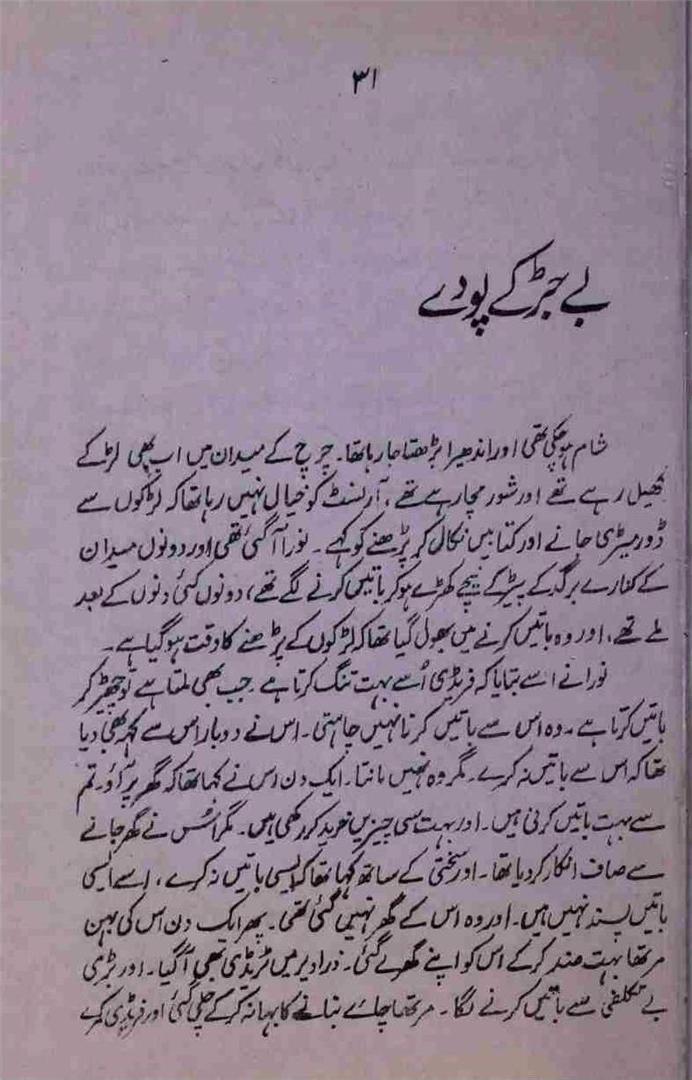 ۳۱
بے جڑ کے پودے
شام ہو چکی تھی اور اندھیرا بڑھتا جا رہا تھا۔ چرچ کے میدان میں اب بھی لڑکے
کھیل رہے تھے اور شور مچا رہے تھے، آرنسٹ کو خیال نہیں رہا تھا کہ لڑکوں سے
ڈورمیٹری جانے اور کتابیں نکال کر پڑھنے کو کہے۔ نورا آ گئی تھی اور دونوں میدان
کے کنارے برگد کے پیڑ کے نیچے کھڑے ہو کر باتیں کرنے لگے تھے، دونوں کئی دنوں کے بعد
ملے تھے، اور وہ باتیں کرنے میں بھول گیا تھا کہ لڑکوں کے پڑھنے کا وقت ہو گیا ہے۔
نورا نے اسے بتایا کہ فریڈی اُسے بہت تنگ کرتا ہے۔ جب بھی ملتا ہے تو چھیڑ کر
باتیں کرتا ہے۔ وہ اس سے باتیں کرنا نہیں چاہتی۔ اس نے دو بار اس سے کہہ بھی دیا
تھا کہ اس سے باتیں نہ کرے۔ مگر وہ نہیں مانتا۔ ایک دن اس نے کہا تھا کہ گھر پر آؤ۔ تم
سے بہت باتیں کرنی ہیں۔ اور بہت سی چیزیں خرید کر رکھی ہیں۔ مگر اُس نے گھر جانے
سے صاف انکار کر دیا تھا۔ اور سختی کے ساتھ کہا تھا کہ ایسی باتیں نہ کرے، اسے ایسی
باتیں پسند نہیں ہیں۔ اور وہ اس کے گھر نہیں گئی تھی۔ پھر ایک دن اس کی بہن
مرتھا بہت ضد کر کے اس کو اپنے گھر لے گئی۔ ذرا دیر میں فریڈی بھی آ گیا۔ اور بڑی
بے تکلفی سے باتیں کرنے لگا۔ مرتھا چائے بنانے کا بہانہ کر کے چلی گئی اور فریڈی کمرے